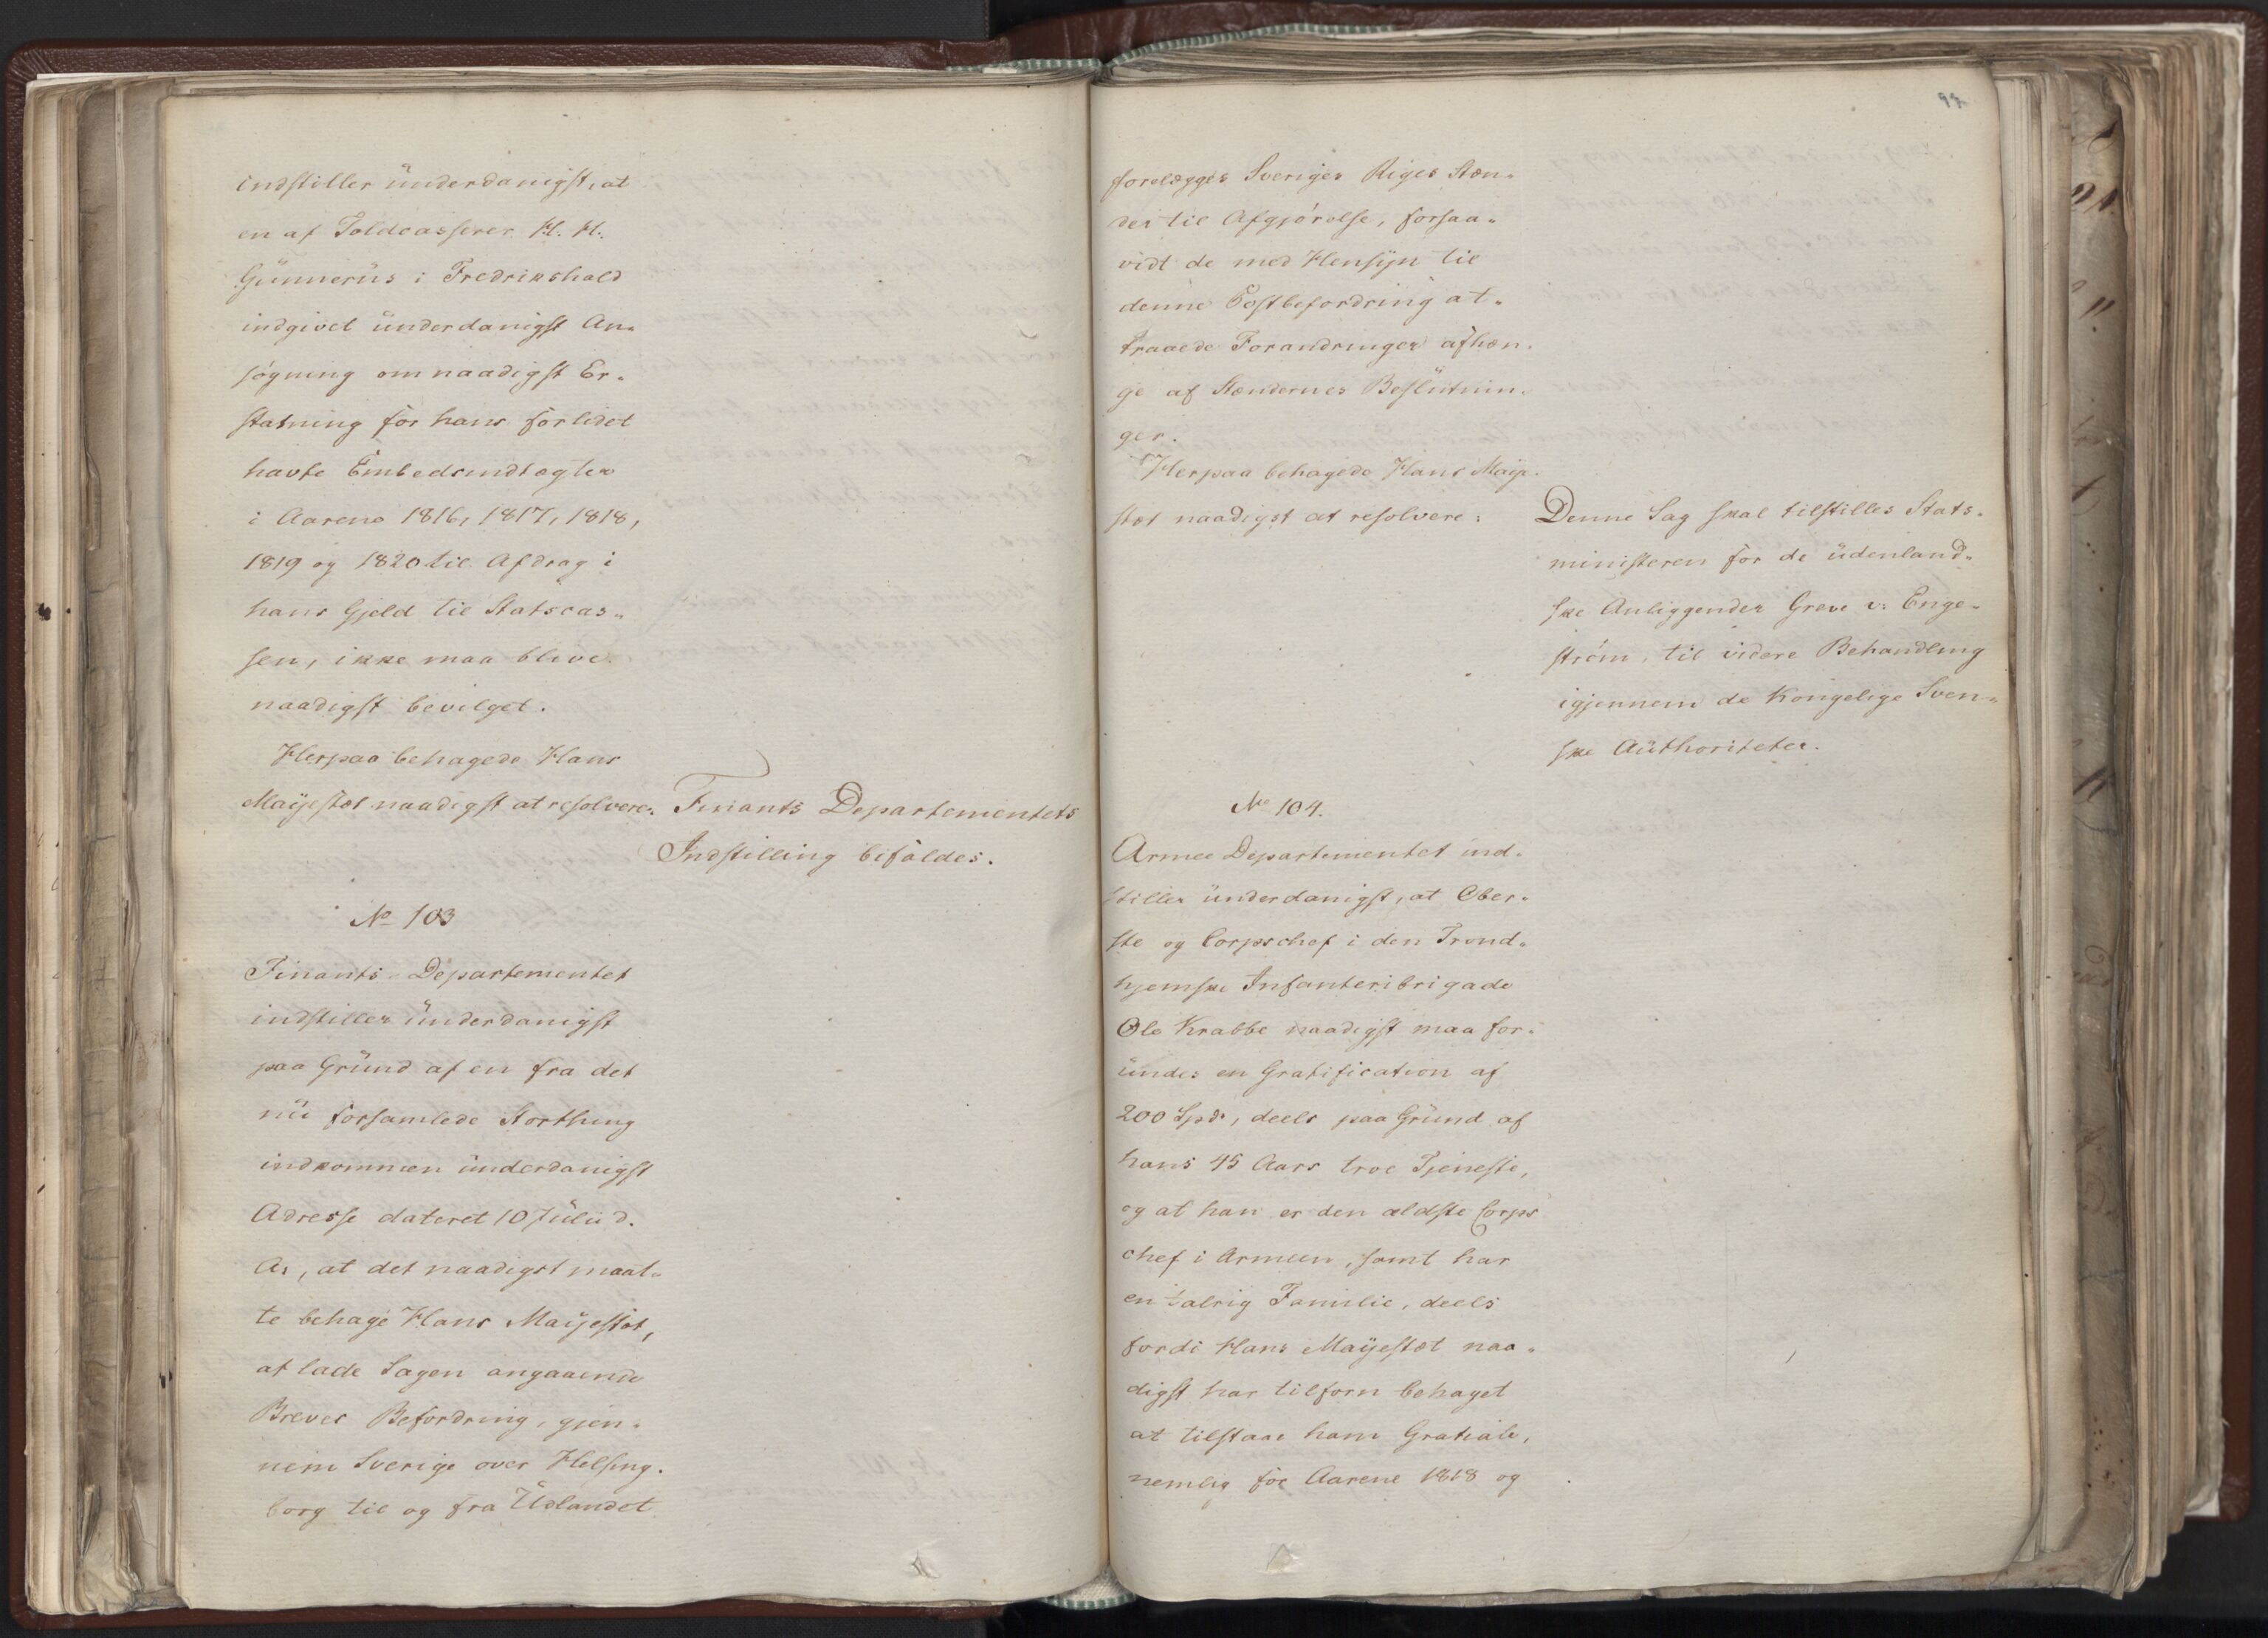 indstiller ünderdanigst, at
en af Toldcasserer H. H.
Günnerüs i Fredrikshald
indgivet ünderdanigst An-
søgning om naadigst Er-
statning for hans forlidet
havte Embedsindtægter
i Aarene 1816, 1817, 1818,
1819 og 1820 til Afdrag i
hans Gjeld til Statscas-
sen, ikke maa blive
naadigst bevilget.
Herpaa behagede Hans
Majestæt naadigst at resolvere:
Finants Departementets
Indstilling bifaldes.
No 103
Finants-Departementet
indstiller ünderdanigst
paa Gründ af en fra det
nü forsamlede Storthing
indkommen ünderdanigst
Adresse dateret 10 Jülii d.
A., at det naadigst maat-
te behage Hans Majestæt,
at lade Sagen angaaende
Breves Befordring, gjen-
nem Sverige over Helsing-
borg til og fra Üdlandet
97
forelægges Sveriges Riges Stæn-
der til Afgjørelse, forsaa-
vidt de med Hensyn til
denne Postbefordring at-
traaede Forandringer afhæn-
ge af Stændernes Beslütnin-
ger.
Herpaa behagede Hans Maje-
stæt naadigst at resolvere:
Denne Sag skal tilstilles Stats-
ministeren for de üdenland-
ske Anliggender Greve v. Enge-
strøm, til videre Behandling
igjennem de Kongelige Sven-
ske Aüthoriteter.
No 104.
Armee Departementet ind-
stiller ünderdanigst, at Ober-
ste og Corpschef i den Trond-
hjemske Infanteribrigade
Ole Krabbe naadigst maa for-
ündes en Gratification af
200 Spd, deels paa Gründ af
hans 45 Aars troe Tjeneste,
og at han er den ældste Corps
chef i Armeen, samt har
en talrig Familie, deels
fordi Hans Majestæt naa-
digst har tilforn behaget
at tilstaae ham Gratiale,
nemlig for Aarene 1818 og